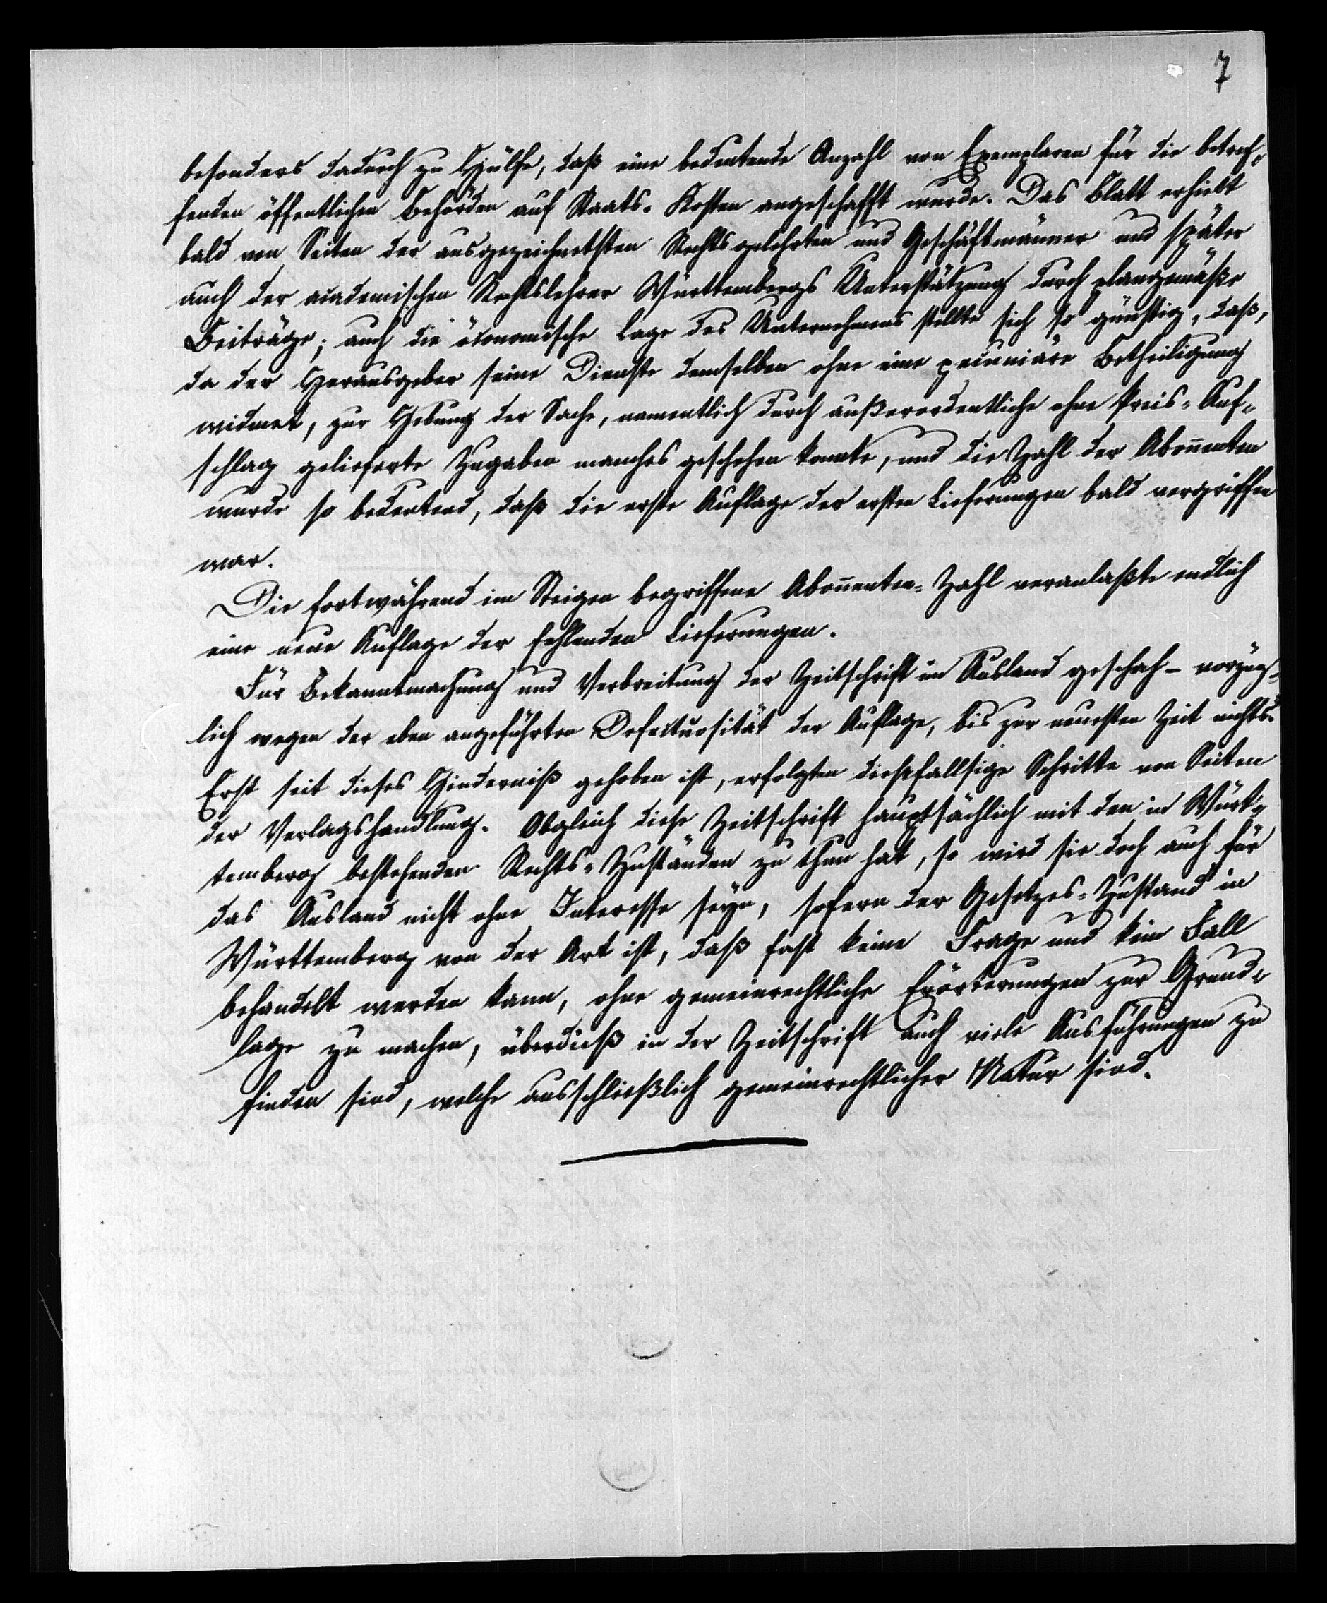 7
besonders dadurch zu Hülfe, daß eine bedeutende Anzahl von Exemplaren für die betref-
fenden öffentlichen Behörden auf Staats-Kosten angeschafft wurde. Das Blatt erhielt
bald von Seiten der ausgezeichnetsten Rechtsgelehrten und Geschäftmänner und später
auch der academischen Rechtslehrer Württembergs Unterstützung durch plangemäße
Beiträge; auch die öconomische Lage des Unternehmens stellte sich so günstig, daß,
da der Herausgeber seine Dienste demselben ohne eine pecuniäre Betheiligung
widmet, zur Hebung der Sache, namentlich durch außerordentliche ohne Preis-Auf-
schlag gelieferte Zugaben manches geschehen konnte, und die Zahl der Abon̅enten
wurde so bedeutend, daß die erste Auflage der ersten Lieferungen bald vergriffen
war.
Die fortwährend im Steigen begriffene Abon̅enten-Zahl veranlaßte endlich
eine neue Auflage der fehlenden Lieferungen.
Für Bekanntmachung und Verbreitung der Zeitschrift im Ausland geschah – vorzüg-
lich wegen der eben angeführten Defectuosität der Auflage, bis zur neuesten Zeit nichts.
Erst seit dieses Hinderniß gehoben ist, erfolgten dießfallsige Schritte von Seiten
der Verlagshandlung. Obgleich diese Zeitschrift hauptsächlich mit den in Würt-
temberg bestehenden Rechts-Zuständen zu thun hat, so wird sie doch auch für
das Ausland nicht ohne Interesse seyn, sofern der Gesetzes-Zustand in
Württemberg von der Art ist, daß fast keine Frage und kein Fall
behandelt werden kann, ohne gemeinrechtliche Erörterungen zur Grund-
lage zu machen, überdieß in der Zeitschrift auch viele Ausführungen zu
finden sind, welche ausschließlich gemeinrechtlicher Natur sind.